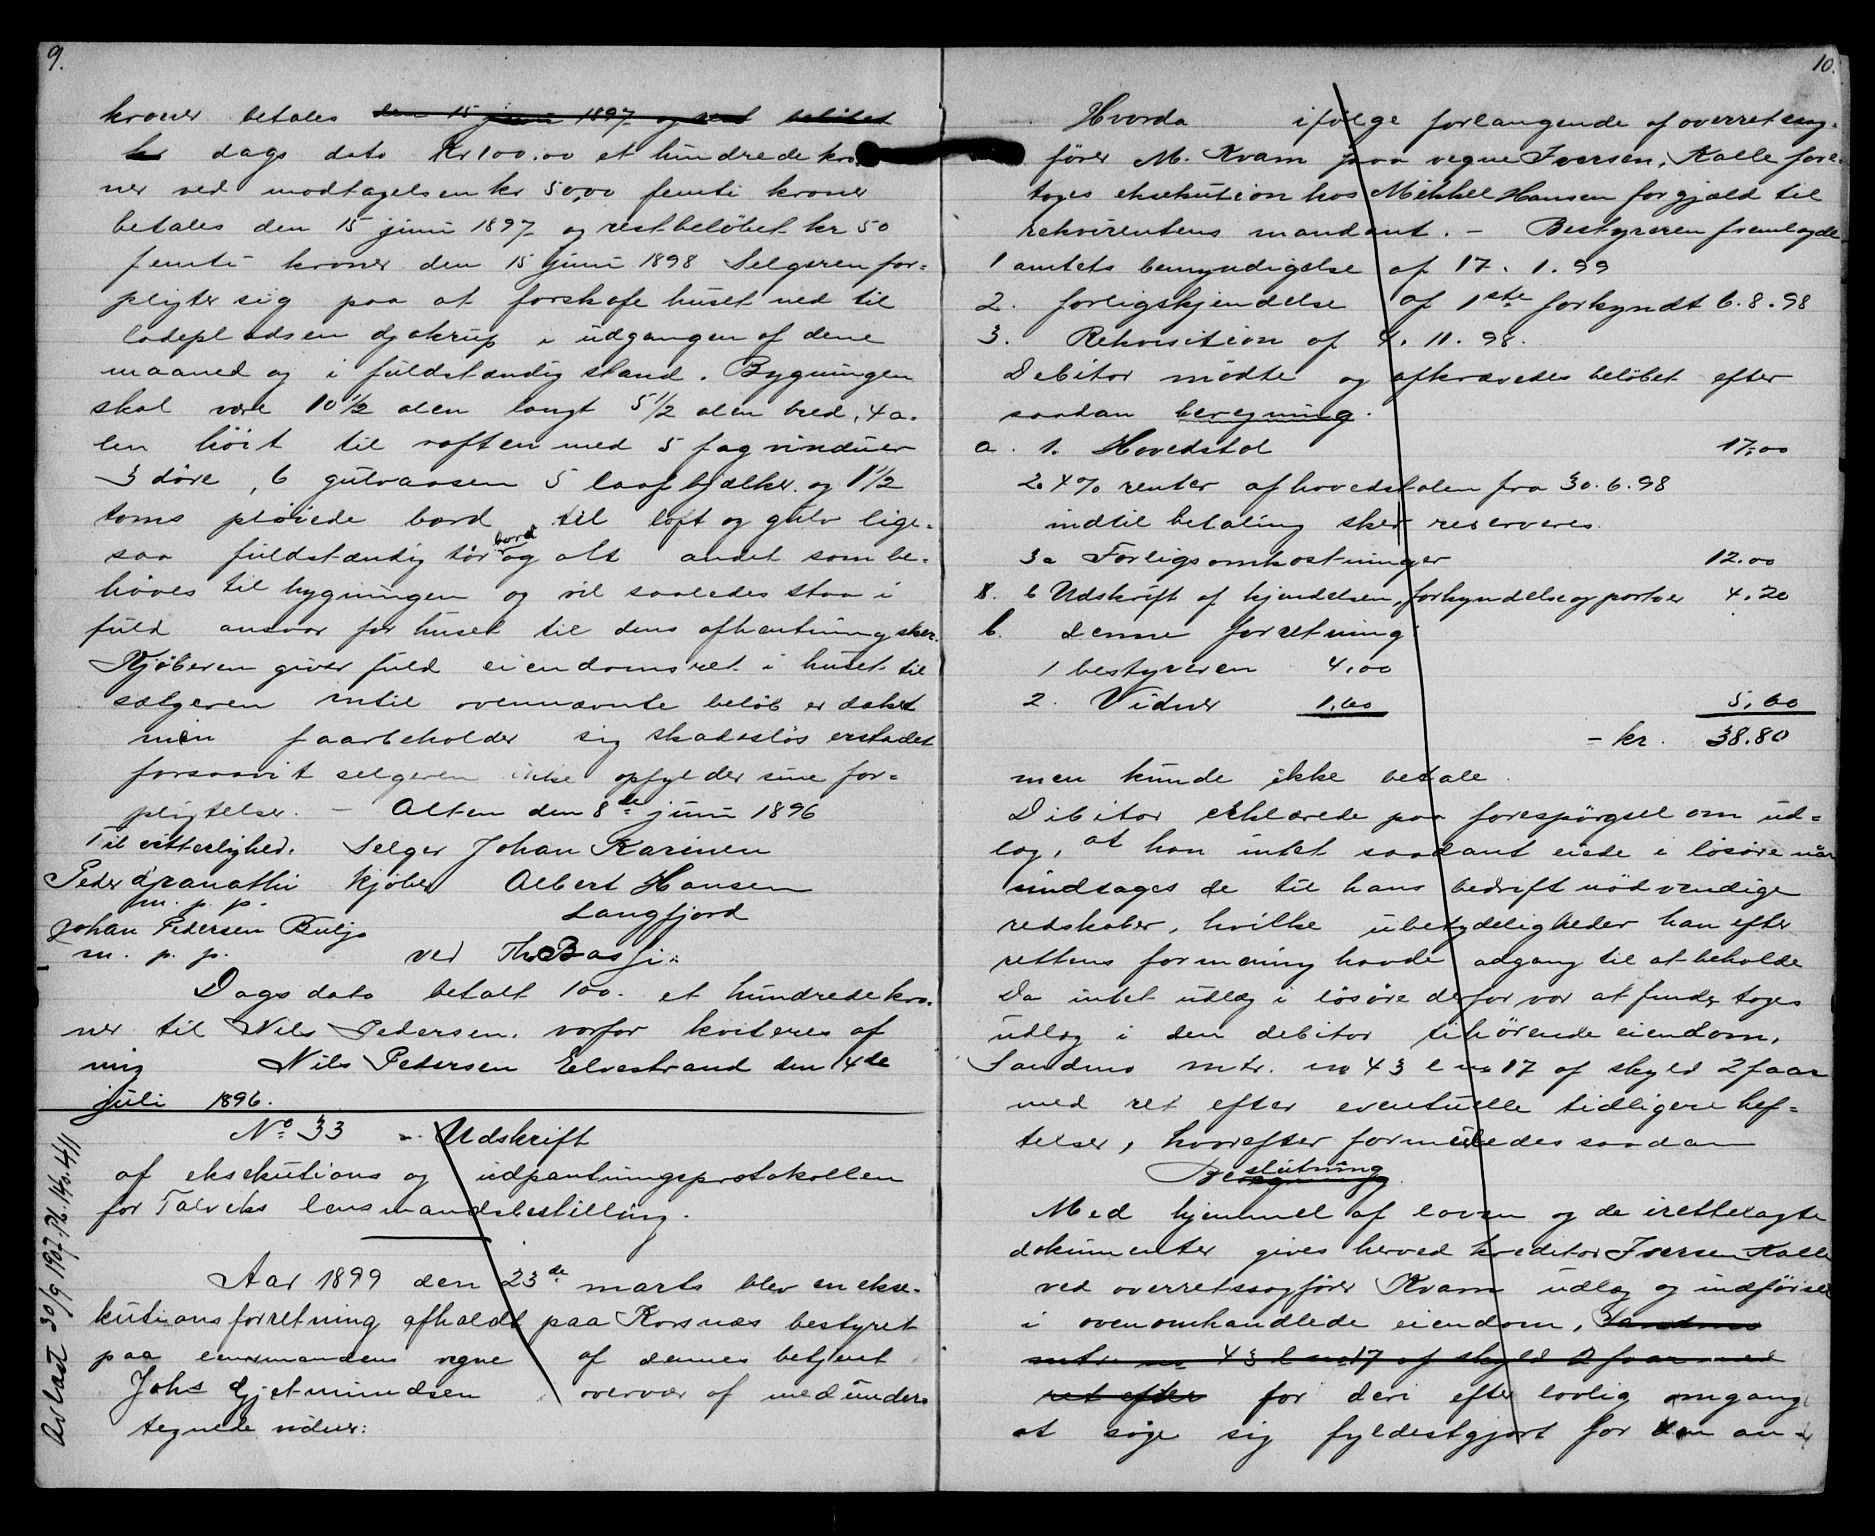 9.
kroner betales den 15 juni 1897 og rest beløbet
kr dags dato Kr 100.00 et hundrede kro-
ner ved modtagelsen kr 50,00 femti kroner
betales den 15 juni 1897 og restbeløbet kr 50
femti kroner den 15 juni 1898 Selgeren for-
pligter sig paa at forskafe huset ned til
ladepladsen djakrup i udgangen af dene
maaned og i fuldstændig stand. Bygningen
skal være 10 1/2 alen langt 5 1/2 alen bred, 4 a-
len høit til raften med 5 fag vinduer
3 døre, 6 gulvaasen 5 laaftbjælker og 1 1/2
toms pløiede bord til loft og gulv lige-
saa fuldstændig tør bord og alt andet som be-
høves til bygningen og vil saaledes staa i
fuld ansvar for huset til dens afhentning sker.
Kjøberen giver fuld eiendomsret i huset til
sælgeren intil ovennævnte beløb er dækt
men faarbeholder sig skadesløs erstadet
forsaavit selgeren ikke opfylder sine for-
pligtelser. – Alten den 8de juni 1896
Til vitterlighed. Selger Johan Karinen
Peder Granathi kjøber Albert Hansen
m. p. p. Langfjord
Johan Pedersen Buljo
m. p. p. ved Th. Bassi
Dags dato betalt 100. et hundrede kro-
ner til Nils Pedersen, vorfor kviteres af
mig Nils Pedersen Elvestrand den 4de
juli 1896.
No 33 – Udskrift
af eksekutions og udpantningsprotokollen
for Talviks lensmandsbestilling.
Aar 1899 den 23de marts blev en ekse-
kutionsforretning afholdt paa Korsnæs bestyret
paa lensmandens vegne af dennes betjent
Johs Gjetmundsen overvær af medunder-
tegnede vidner:
Avlæst 30/9 1907. Pb. 14 o. 411
10.
Hvorda ifølge forlangende af overretssag-
fører M. Kvam paa vegne Iversen, Kalle fore-
toges eksekution hos Mikkel Hansen for gjæld til
rekvirentens mandant. – Bestyreren fremlagde
1 amtets bemyndigelse af 17. 1. 99
2. forligskjendelse af 1ste forkyndt 6. 8. 98
3. Rekvisition af 4. 11. 98.
Debitor mødte og afkrævedes beløbet efter
saadan beregning.
a. 1. Hovedstol 17.00
2. 4% renter af hovedstolen fra 30. 6. 98
indtil betaling sker reserveres.
3 a Forligsomkostninger 12.00
8. b Udskrift af kjendelsen, forkyndelse og portoer 4.20
b. denne forretning
1 bestyreren 4.00
2. Vidner 1,60 5,60
= kr. 38.80
men kunde ikke betale.
Debitor erklærede paa forespørgsel om ud-
læg, at han intet saadant eiede i løsøre naar
undtages de til hans bedrift nødvendige
redskaber, hvilke ubetydeligheder han efter
rettens formening havde adgang til at beholde
Da intet udlæg i løsøre derfor var at finde toges
udlæg i den debitor tilhørende eiendom,
Sandmo mtr. no 43 l no 17 af skyld 2 faar
med ret efter eventuelle tidligere hef-
telser, hvorefter formuleredes saadan
Beslutning
Med hjemmel af loven og de irettelagte
dokumenter gives herved kreditor Iversen Kalle
ved overretssagfører Kvam udlæg og indførsel
i ovenomhandlede eiendom, Sandmo
mtr no 43 l no 17 af skyld 2 faar med
ret efter for deri efter lovlig omgang
at søge sig fyldestgjort for den an-